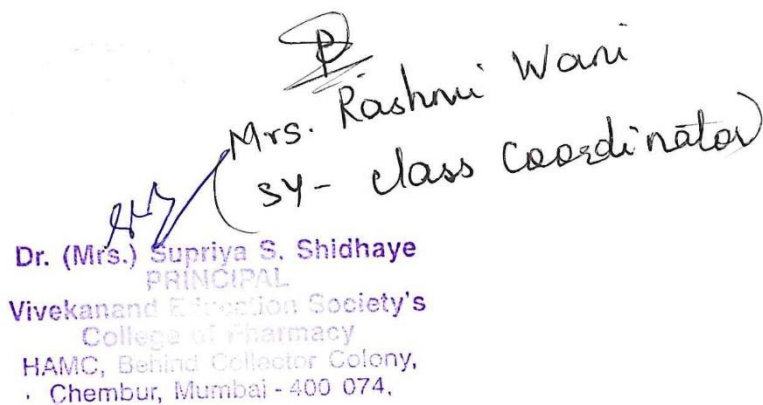 Mrs. Rashmi Wani
(SY - class coordinator)
Dr. (Mrs.) Supriya S. Shidhaye
PRINCIPAL
Vivekanand Education Society's
College of Pharmacy
HAMC, Behind Collector Colony,
Chembur, Mumbai - 400 074.